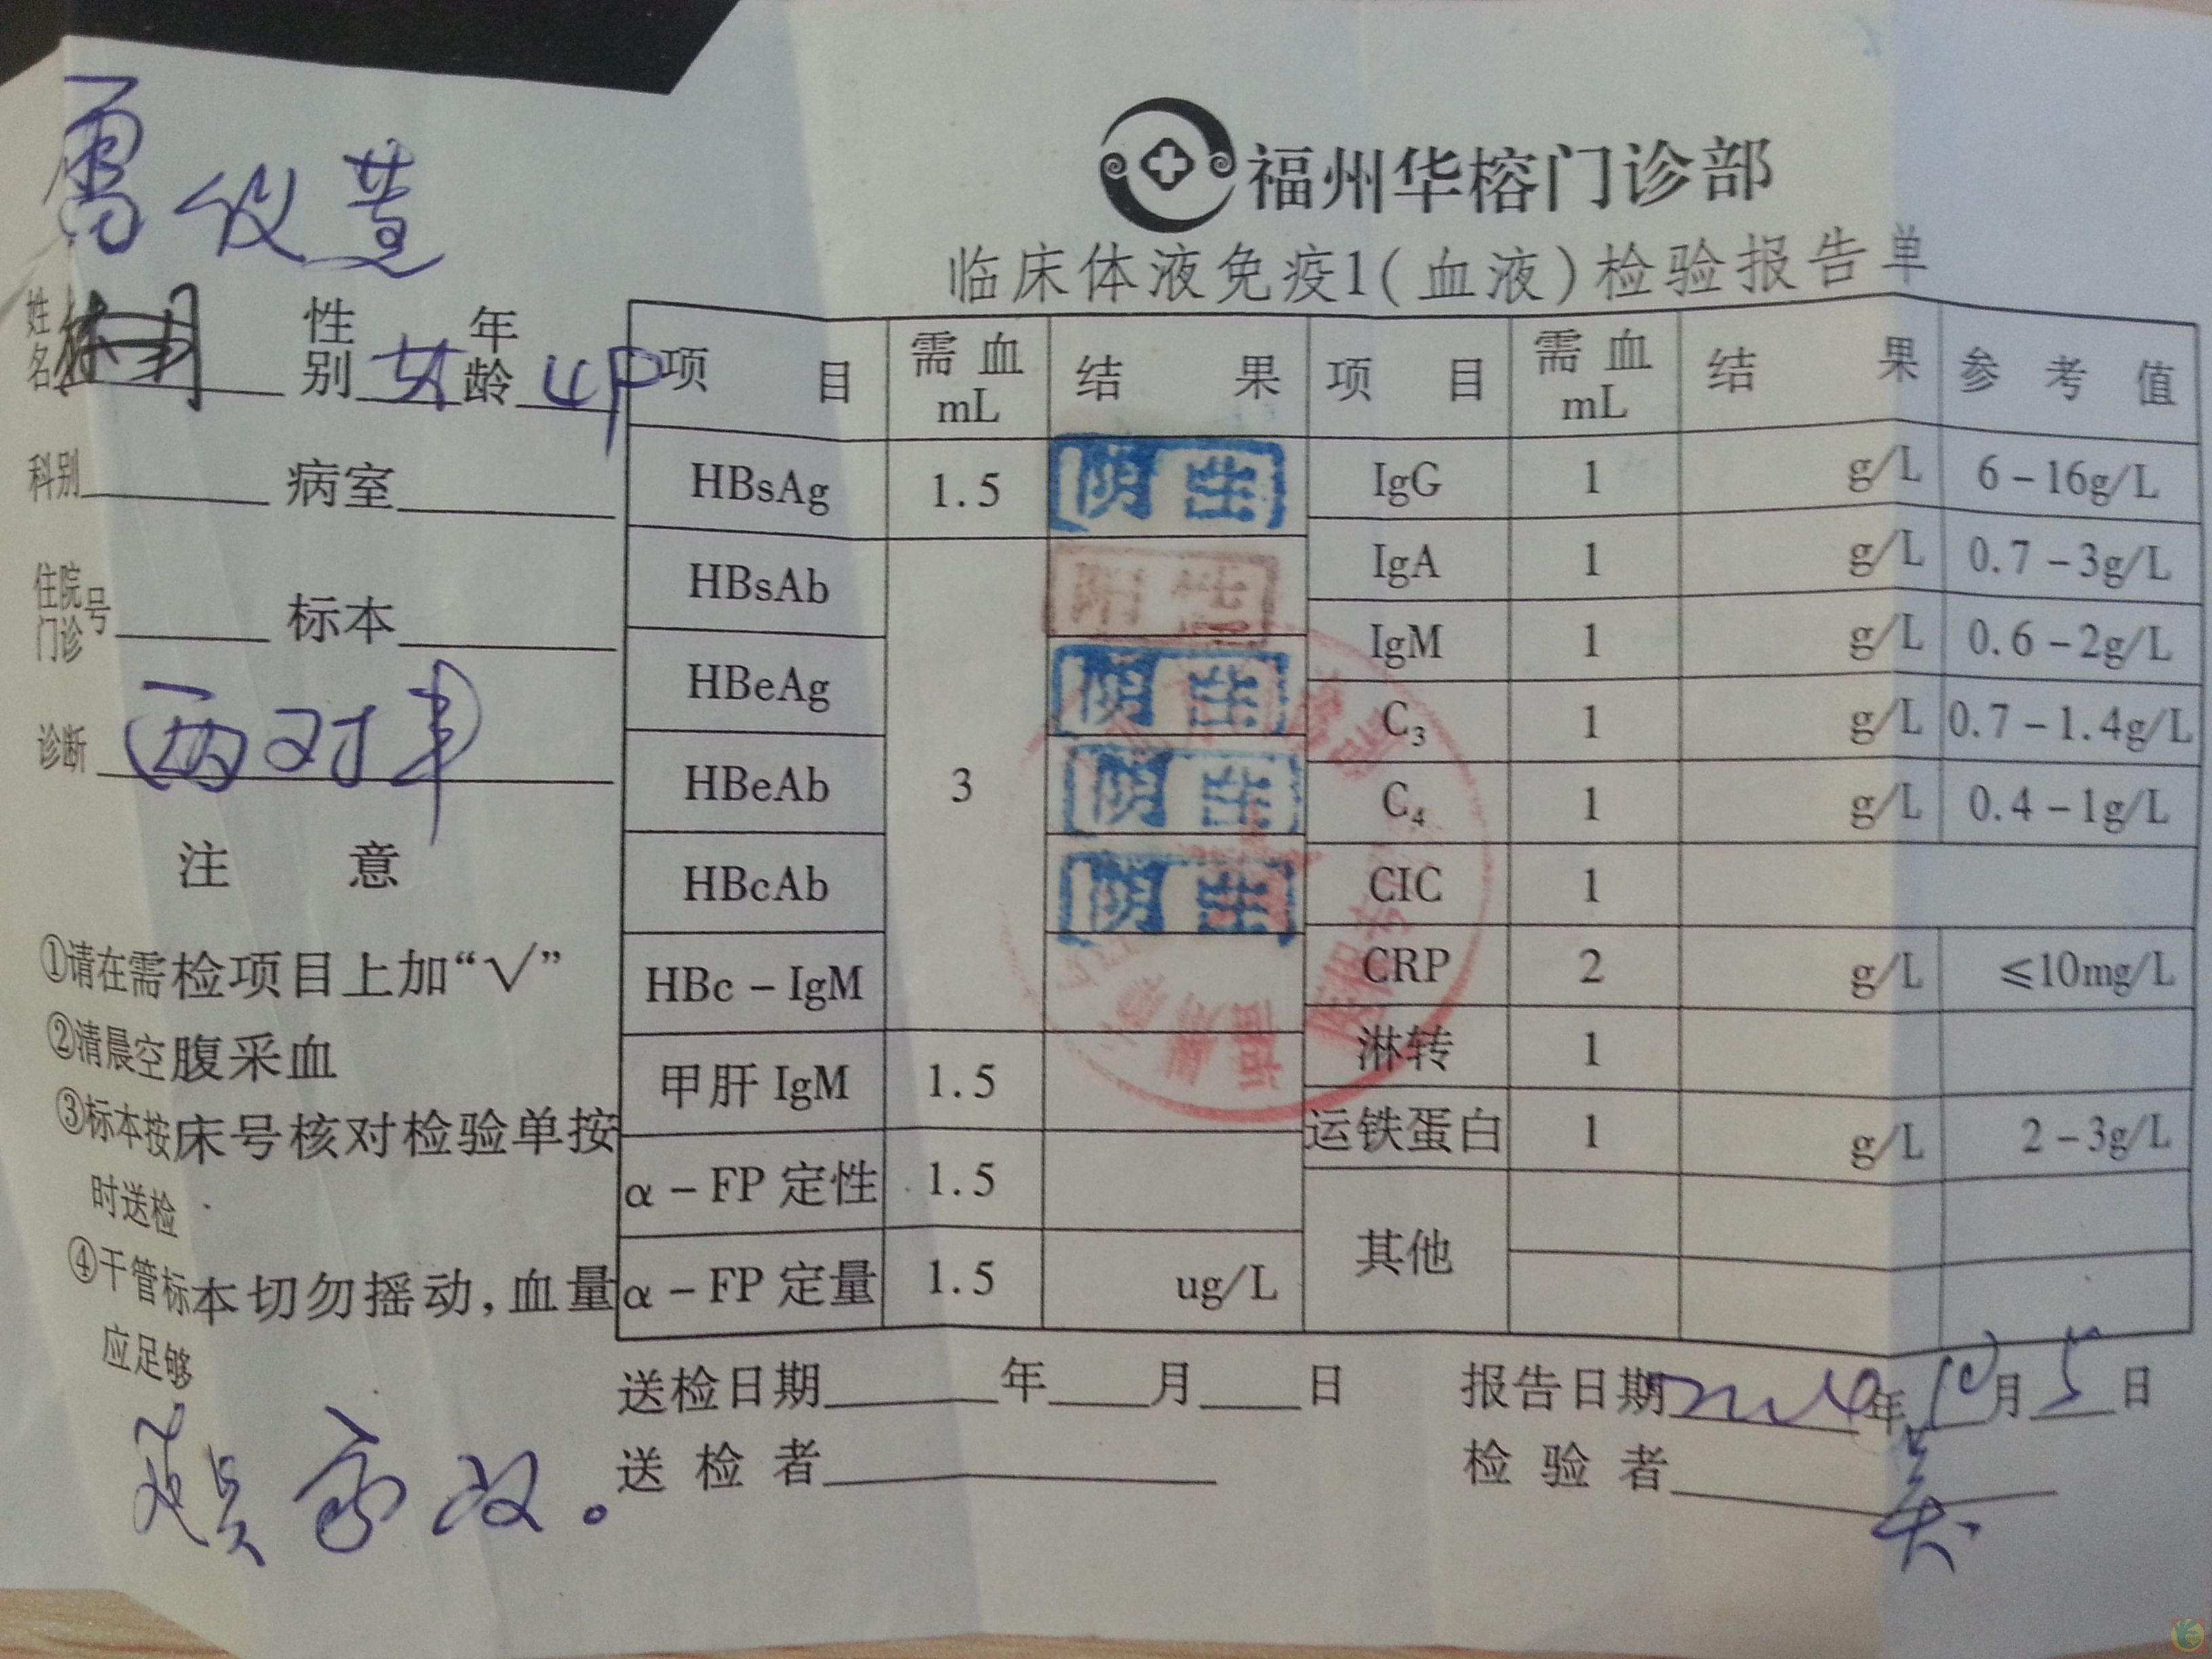 福州华榕门诊部
临床体液免疫1(血液)检验报告单
姓名 性别 女 年龄 4岁
科别 病室
住院门诊号 标本
诊断 两对半
注 意
①请在需检项目上加“√”
②清晨空腹采血
③标本按床号核对检验单按
时送检
④干管标本切勿摇动,血量
应足够
项 目 需血 mL 结 果 项 目 需血 mL 结 果 参 考 值
HBsAg 1.5 阴性 IgG 1 g/L 6-16g/L
HBsAb 3 阳性 IgA 1 g/L 0.7-3g/L
HBeAg 阴性 IgM 1 g/L 0.6-2g/L
HBeAb 阴性 C₃ 1 g/L 0.7-1.4g/L
HBcAb 阴性 C₄ 1 g/L 0.4-1g/L
HBc-IgM CIC 1
甲肝IgM 1.5 CRP 2 g/L ≤10mg/L
α-FP定性 1.5 淋转 1
α-FP定量 1.5 ug/L 运铁蛋白 1 g/L 2-3g/L
其他
送检日期 年 月 日 报告日期 2014年10月5日
送检者 检验者